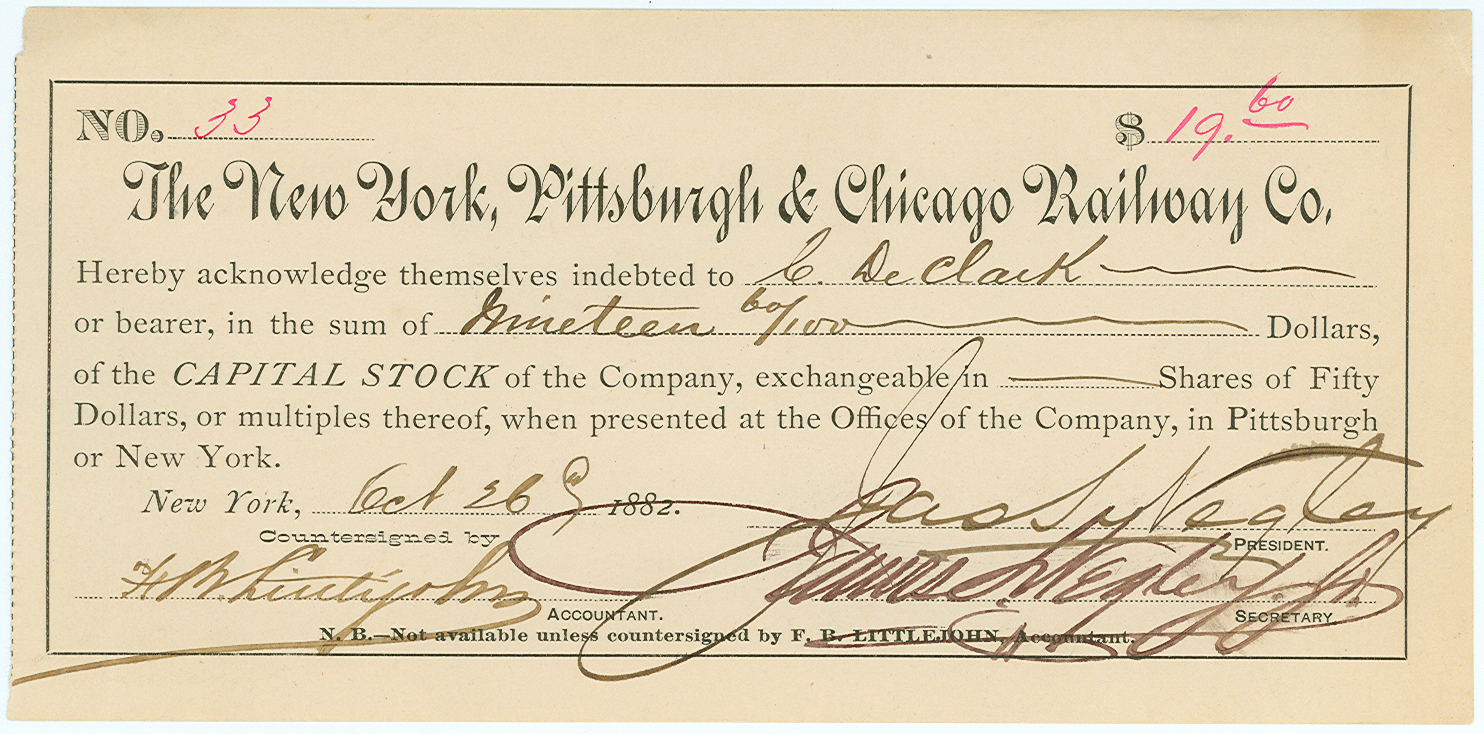 NO. 33 $ 19.60
The New York, Pittsburgh & Chicago Railway Co.
Hereby acknowledge themselves indebted to C. De Clark
or bearer, in the sum of Nineteen 60/100 Dollars,
of the CAPITAL STOCK of the Company, exchangeable in Shares of Fifty
Dollars, or multiples thereof, when presented at the Offices of the Company, in Pittsburgh
or New York.
New York, Oct 26 1882. Jas S Negley
Countersigned by PRESIDENT.
F. B. Littlejohn James S. Negley. Jr.
ACCOUNTANT. SECRETARY.
N. B.—Not available unless countersigned by F. B. LITTLEJOHN, Accountant.